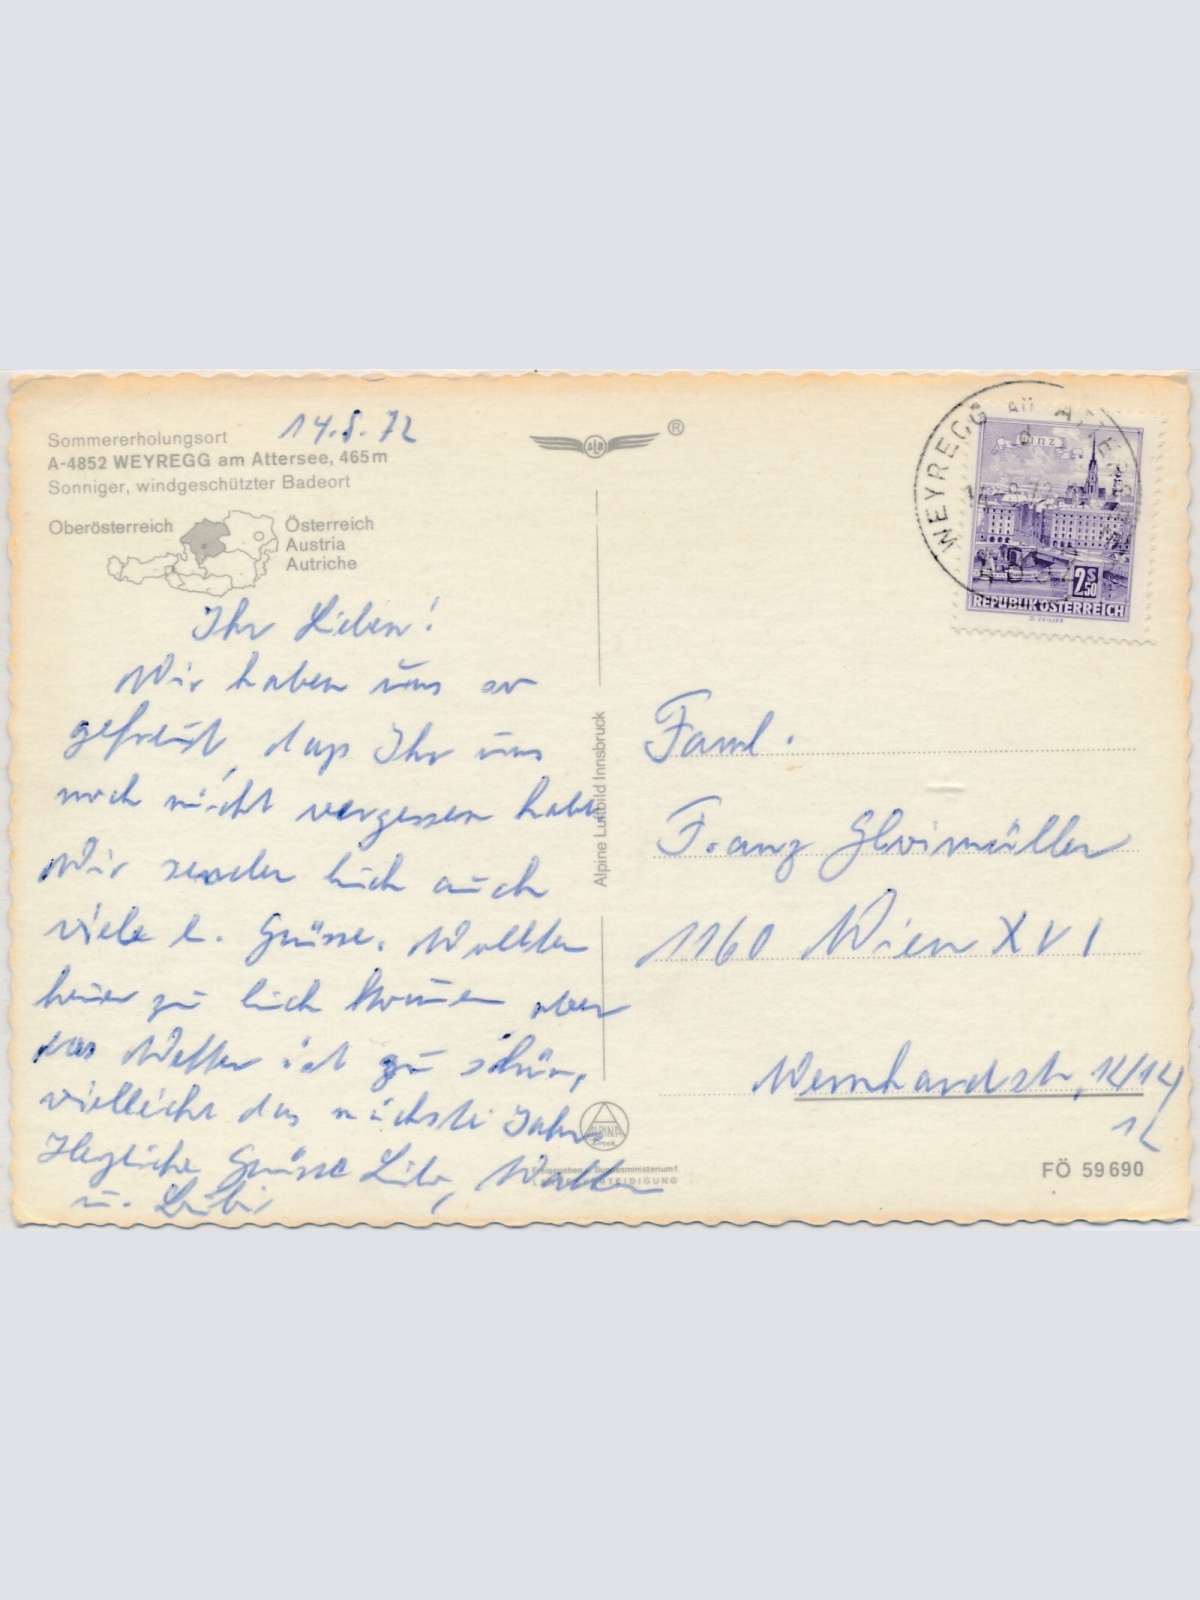 Sommererholungsort
14.8.72
A-4852 WEYREGG am Attersee, 465 m
Sonniger, windgeschützter Badeort
Oberösterreich
Österreich
Austria
Autriche
Ihr Lieben!
Wir haben uns so
gefreut, dass Ihr uns
noch nicht vergessen habt
Wir senden Euch auch
viele l. Grüsse. Wollten
heuer zu Euch kommen aber
das Wetter ist zu schön,
vielleicht das nächste Jahr.
Herzliche Grüsse Walter
u.
®
ALB
Alpine Luftbild Innsbruck
ALPINA
Druck
Freigegeben v. Bundesministerium f.
LANDESVERTEIDIGUNG
WEYREGG AM ATTERSEE
Linz
2 S 50
REPUBLIK ÖSTERREICH
O. ZEILLER
Faml.
Franz
1160 Wien XVI
Wernhardstr. 12/14
12
FÖ 59 690